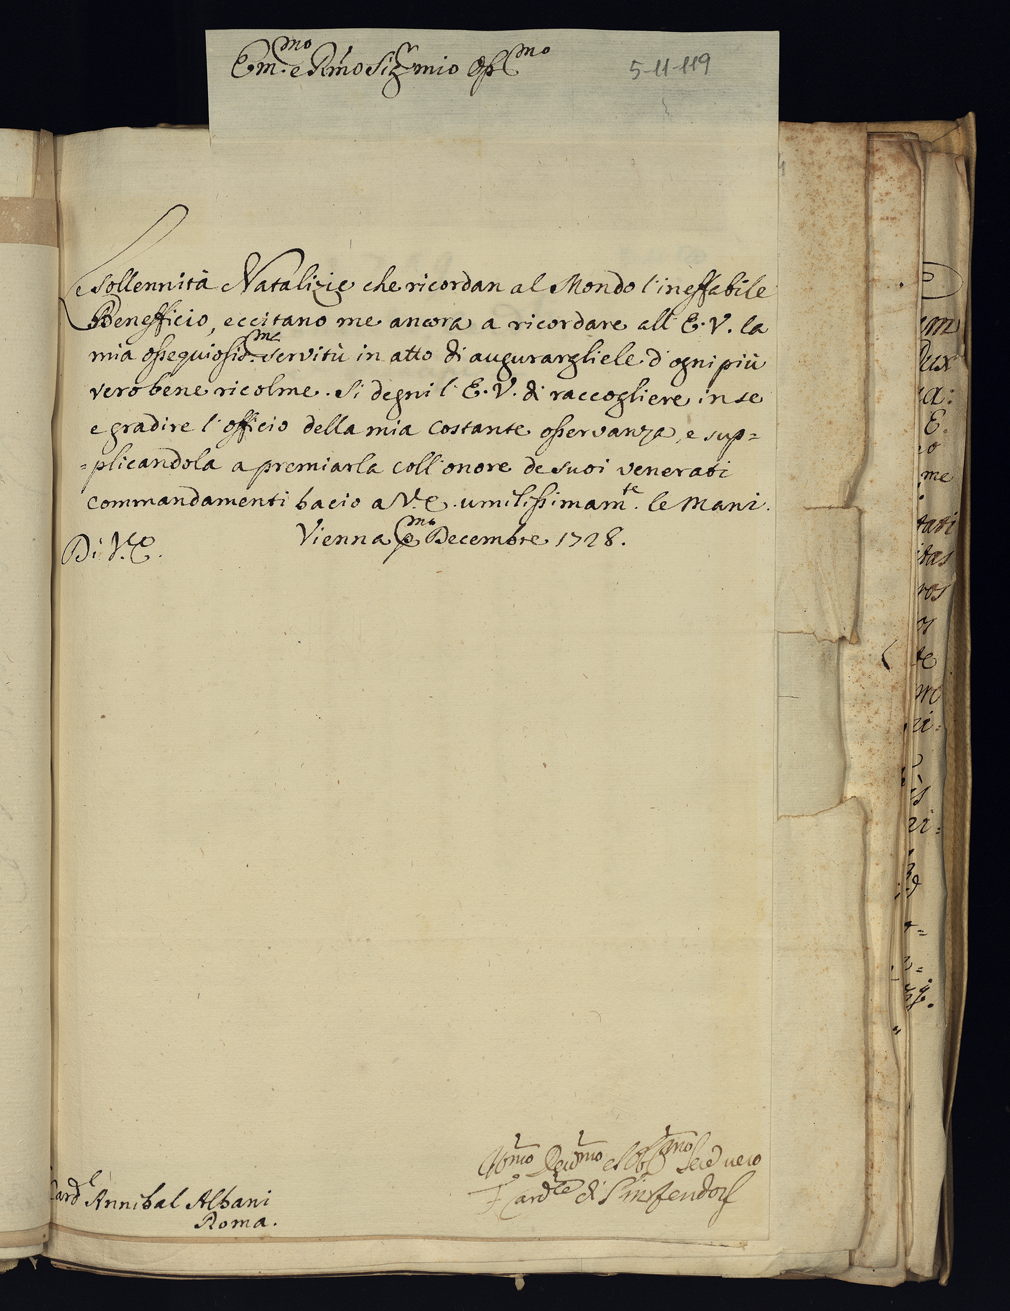 Em.mo e Rmo Sig.r mio Oss.mo
5-11-119
Le Sollennità Natalizie che ricordan al Mondo l'ineffabile
Benefficio, eccitano me ancora a ricordare all' E. V. la
mia ossequiosiss.ma servitù in atto di augurargliele d'ogni più
vero bene ricolme. Si degni l'E. V. di raccogliere in se
e gradire l'officio della mia costante osservanza, e sup=
=plicandola a premiarla coll'onore de suoi venerati
commandamenti bacio a V. E. umilissimam.te le mani.
Vienna Decembre 1728.
Di V. E.
Servo vero
Card.le di Sinzendorf
Card.l Annibal Albani
Roma.